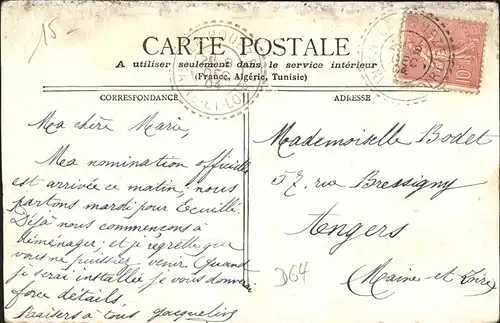 15-
CARTE POSTALE
A utiliser seulement dans le service intérieur
(France, Algérie, Tunisie)
CORRESPONDANCE
ADRESSE
Ma chère Marie,
Ma nomination officielle
est arrivée ce matin; nous
partons mardi pour Ecuillé.
Déjà nous commençons à
déménager; et je regrette que
vous ne puissiez venir. Quand
je serai installée je vous donnerai
force détails.
Baisers à tous Jacqueline
Mademoiselle Bodet
57, rue Bressigny
Angers
Maine-et-Loire
D64
10